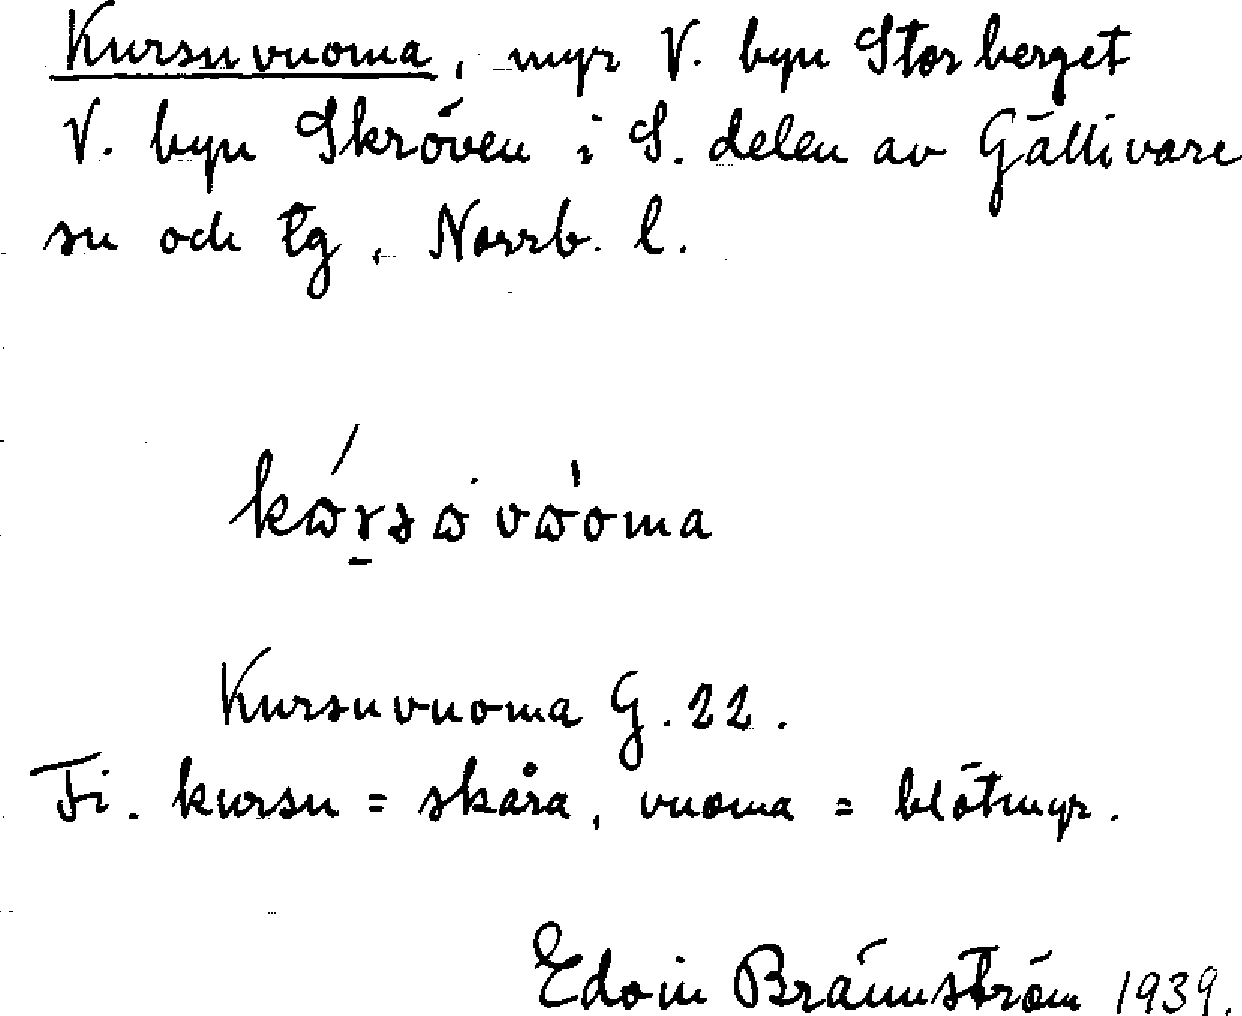 Kursuvuoma, myr V. byn Storberget
V. byn Skröven i S. delen av Gällivare
sn och tg, Norrb. l.
Kursuvuoma G. 22.
Fi. kursu = skåra, vuoma = blötmyr.
Edvin Brännström 1939.